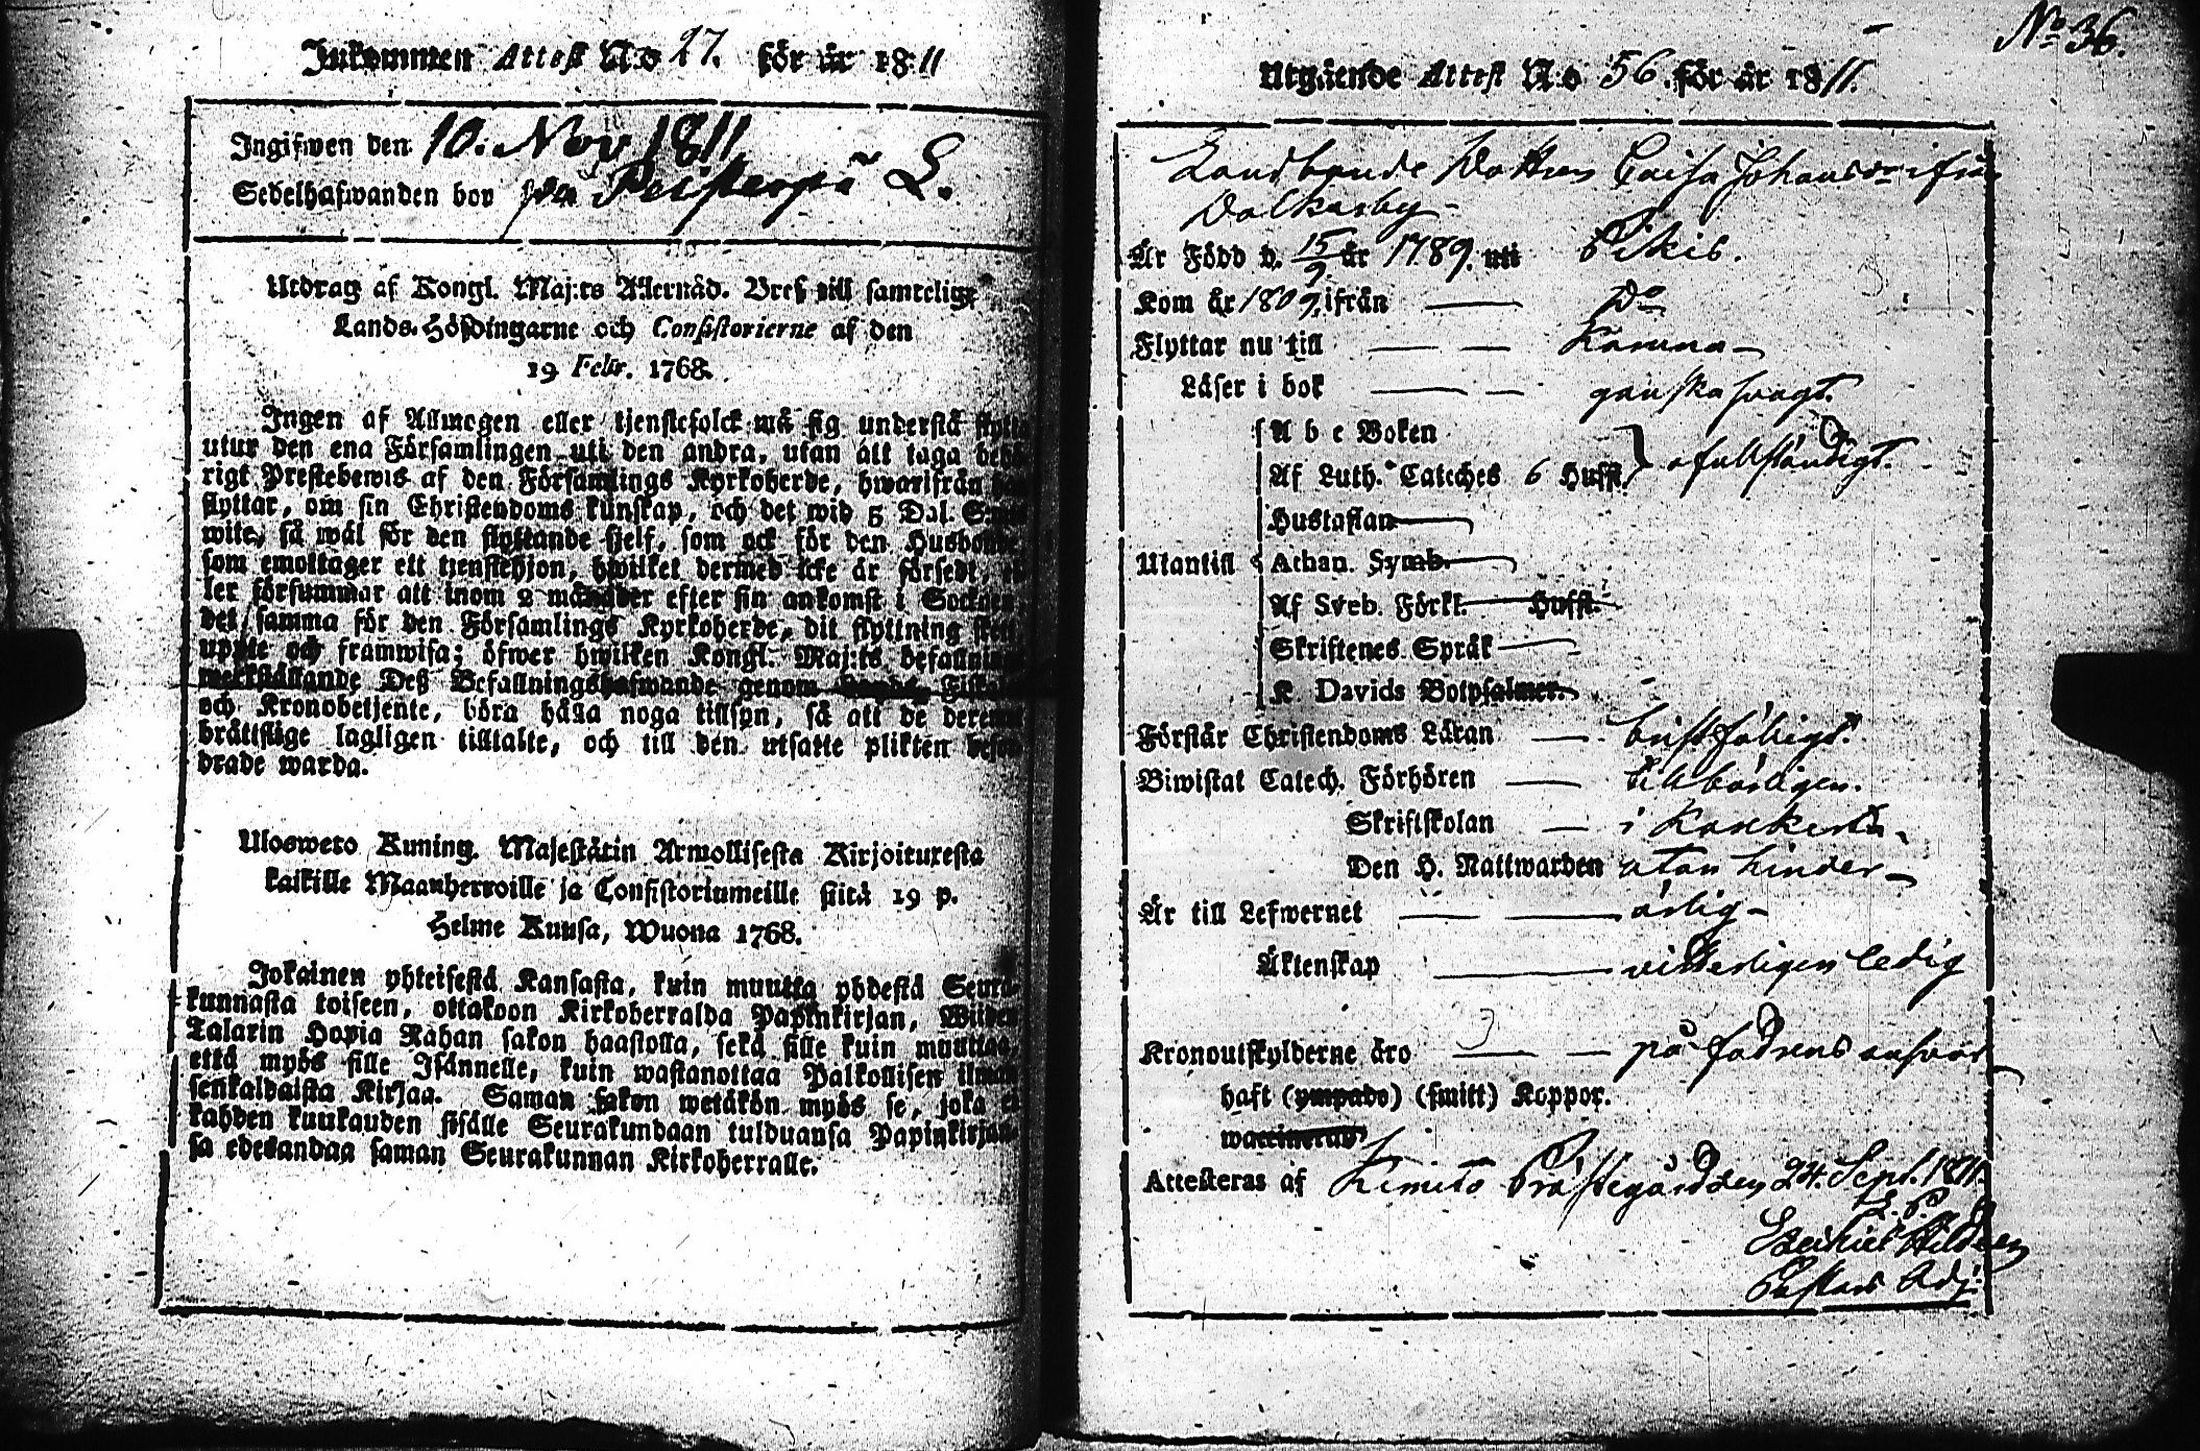 Inkommen Attest N:o 27. för år 1811
Ingifwen den 10. Nov 1811
Sedelhafwanden bor på L.
Utdrag af Kongl. Maj:ts Allernåd. Bref till samtelige
Lands-Höfdingarne och Consistorierne af den
19 Febr. 1768.
Ingen af Allmogen eller tjenstefolck må sig understå flytta
utur den ena Församlingen uti den andra, utan att taga behö-
rigt Prestebewis af den Församlings Kyrkoherde, hwarifrån
flyttar, om sin Christendoms kunskap, och det wid 5 Dal. S:mts
wite, så wäl för den flyttande sjelf, som ock för den Husbonde
som emottager ett tjenstehjon, hwilket dermed icke är försedt, el-
ler försummar att inom 2 månader efter sin ankomst i Socknen
det samma för den Församlings Kyrkoherde, dit flyttning skett
uppte och framwisa; öfwer hwilken Kongl. Maj:ts befallning
werkställande Deß Befallningshafwande genom Fiskal
och Kronobetjente, böra hålla noga tillsyn, så att de deremot
brättslige lagligen tilltalte, och till den utsatte plikten befor-
drade warda.
Ulosweto Kuning. Majestätin Armollisesta Kirjoituxesta
kaikille Maanherroille ja Consistoriumeille sitä 19 p.
Helme Kuusa, Wuona 1768.
Jokainen yhteisestä Kansasta, kuin muutta yhdestä Seura-
kunnasta toiseen, ottakoon Kirkoherralda Papinkirjan, Wiiden
Talarin Hopia Rahan sakon haastolla, sekä sille kuin muuttaa,
että myös sille Isännelle, kuin wastanottaa Palkollisen ilman
senkaldaista Kirjaa. Saman sakon wetäkön myös se, joka ei
kahden kuukauden sisälle Seurakundaan tulduansa Papinkirjan-
sa edesandaa saman Seurakunnan Kirkoherralle.
No 36.
Utgående Attest N:o 56. för år 1811.
Landbonde Dottren Caisa Johansdr ifrån
Dalkarby
Är Född d. 15/9 år 1789. uti Pikis.
Kom år 1809. ifrån Do
Flyttar nu till Karuna
Läser i bok ganska svagt.
A b c Boken
Af Luth. Cateches 6 Hufst. ofullständigt.
Hustaflan
Utantill Athan. Symb.
Af Sveb. Förkl. Hufst.
Skriftenes Språk
K. Davids Botpsalmer.
Förstår Christendoms Läran bristfäligt.
Biwistat Catech. Förhören tillbörligen.
Skriftskolan i
Den H. Nattwarden utan hinder
Är till Lefwernet ärlig
Äktenskap vitterligen ledig
Kronoutskylderne äro på fadrens ansvar
haft (ympade) (smitt) Koppor.
waccinerad
Attesteras af Kimito Prästegård den 24. Sept. 1811.
Ezechiel Hildeen
Pastors Adj.